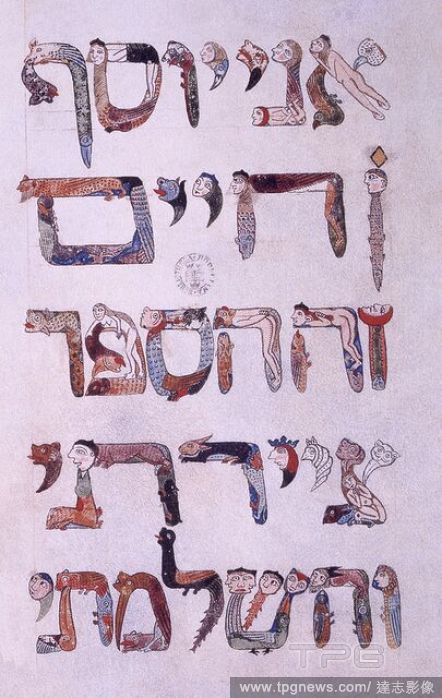 אני יוסף
ן חיים
זה הספר
ציירתי
והשלמתי
TPG
www.tpgnews.com/ 達志影像